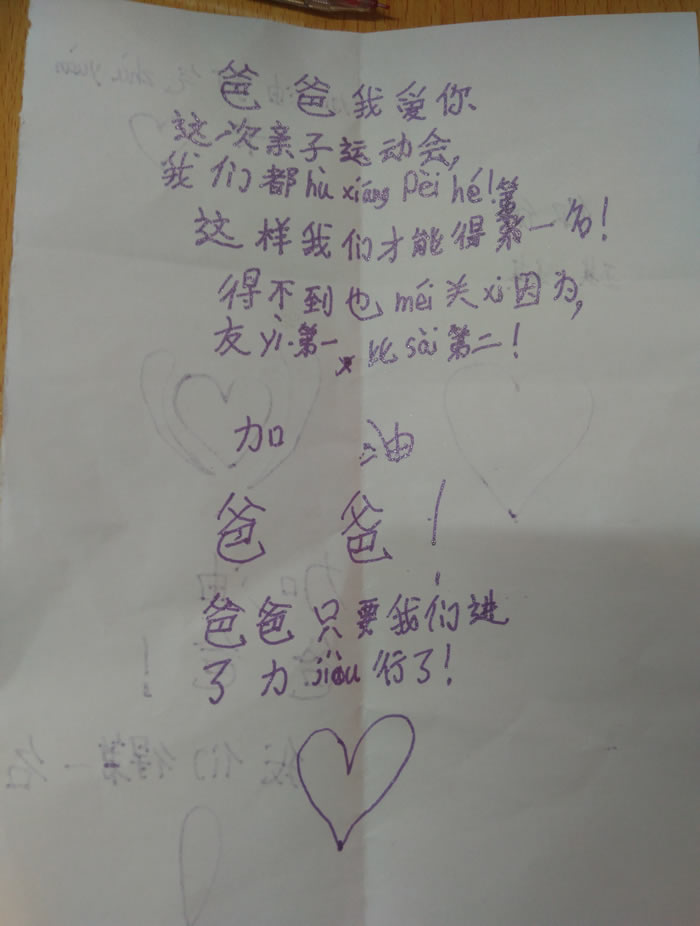 爸爸我爱你
这次亲子运动会,
我们都hù xiāng Pèi hé!第
这样我们才能得第一名!
得不到也méi关xi因为,
友yì.第一,比sài第二!
加油
爸爸!
爸爸只要我们进
了力jiòu行了!